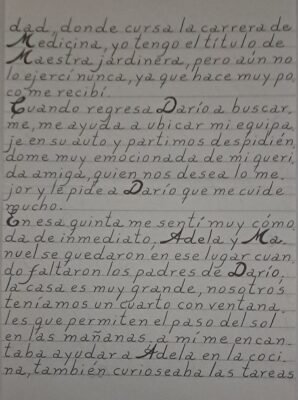 dad, donde cursa la carrera de
Medicina, yo tengo el título de
Maestra jardinera, pero aún no
lo ejercí nunca, ya que hace muy po
co me recibí.
Cuando regresa Darío a buscar,
me, me ayuda a ubicar mi equipa,
je en su auto y partimos despidién,
dome muy emocionada de mi queri,
da amiga, quien nos desea lo me,
jor y le pide a Darío que me cuide
mucho.
En esa quinta me sentí muy cómo,
da de inmediato, Adela y Ma,
nuel se quedaron en ese lugar cuan,
do faltaron los padres de Darío,
la casa es muy grande, nosotros
teníamos un cuarto con ventana,
les que permiten el paso del sol
en las mañanas, a mi me encan,
taba ayudar a Adela en la coci,
na, también curioseaba las tareas